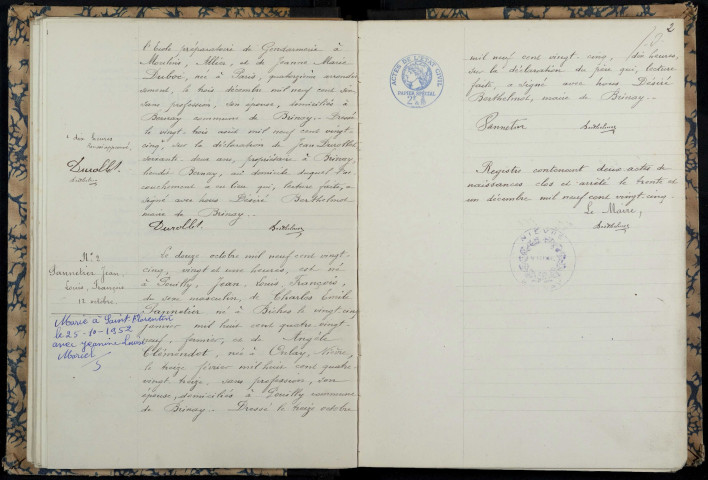 l'école préparatoire de Gendarmerie à
Moulins, Allier, et de Jeanne Marie
Duboc, née à Paris, quatorzième arrondis
sement, le trois décembre mil neuf cent
sans profession, son épouse, domiciliés à
Bernay commune de Brinay. Dressé
le vingt trois août mil neuf cent vingt-
cinq, sur la déclaration de Jean Durollet
soixante deux ans, propriétaire à Brinay,
Bernay, au domicile duquel l'ac
couchement a eu lieu qui, lecture faite, a
signé avec Nous Désiré Berthelmot
maire de Brinay.
Durollet Berthelmot
dix heures
Durollet
Berthelmot
N° 2
Pannetier Jean,
Louis, François
12 octobre.
Marié à Saint Florentin
le 25-10-1952
avec Jeanine
Le douze octobre mil neuf cent vingt-
cinq, vingt et une heures, est né
à Pouilly, Jean, Louis, François,
du sexe masculin, de Charles Emile
Pannetier né à Biches le vingt cinq
janvier mil huit cent quatre vingt-
neuf, fermier, et de Angèle
Clémendot, née à Oulay, Nièvre,
le treize février mil huit cent quatre
vingt treize, sans profession, son
épouse, domiciliés à Pouilly commune
de Brinay. Dressé le treize octobre
2
mil neuf cent vingt-cinq, dix heures,
sur la déclaration du père qui, lecture
faite, a signé avec Nous Désiré
Berthelmot, maire de Brinay.
Pannetier Berthelmot
ACTES DE L'ETAT CIVIL
PAPIER SPECIAL
Registre contenant deux actes de
naissances clos et arrêté le trente et
un décembre mil neuf cent vingt-cinq.
Le Maire,
Berthelmot
NIEVRE